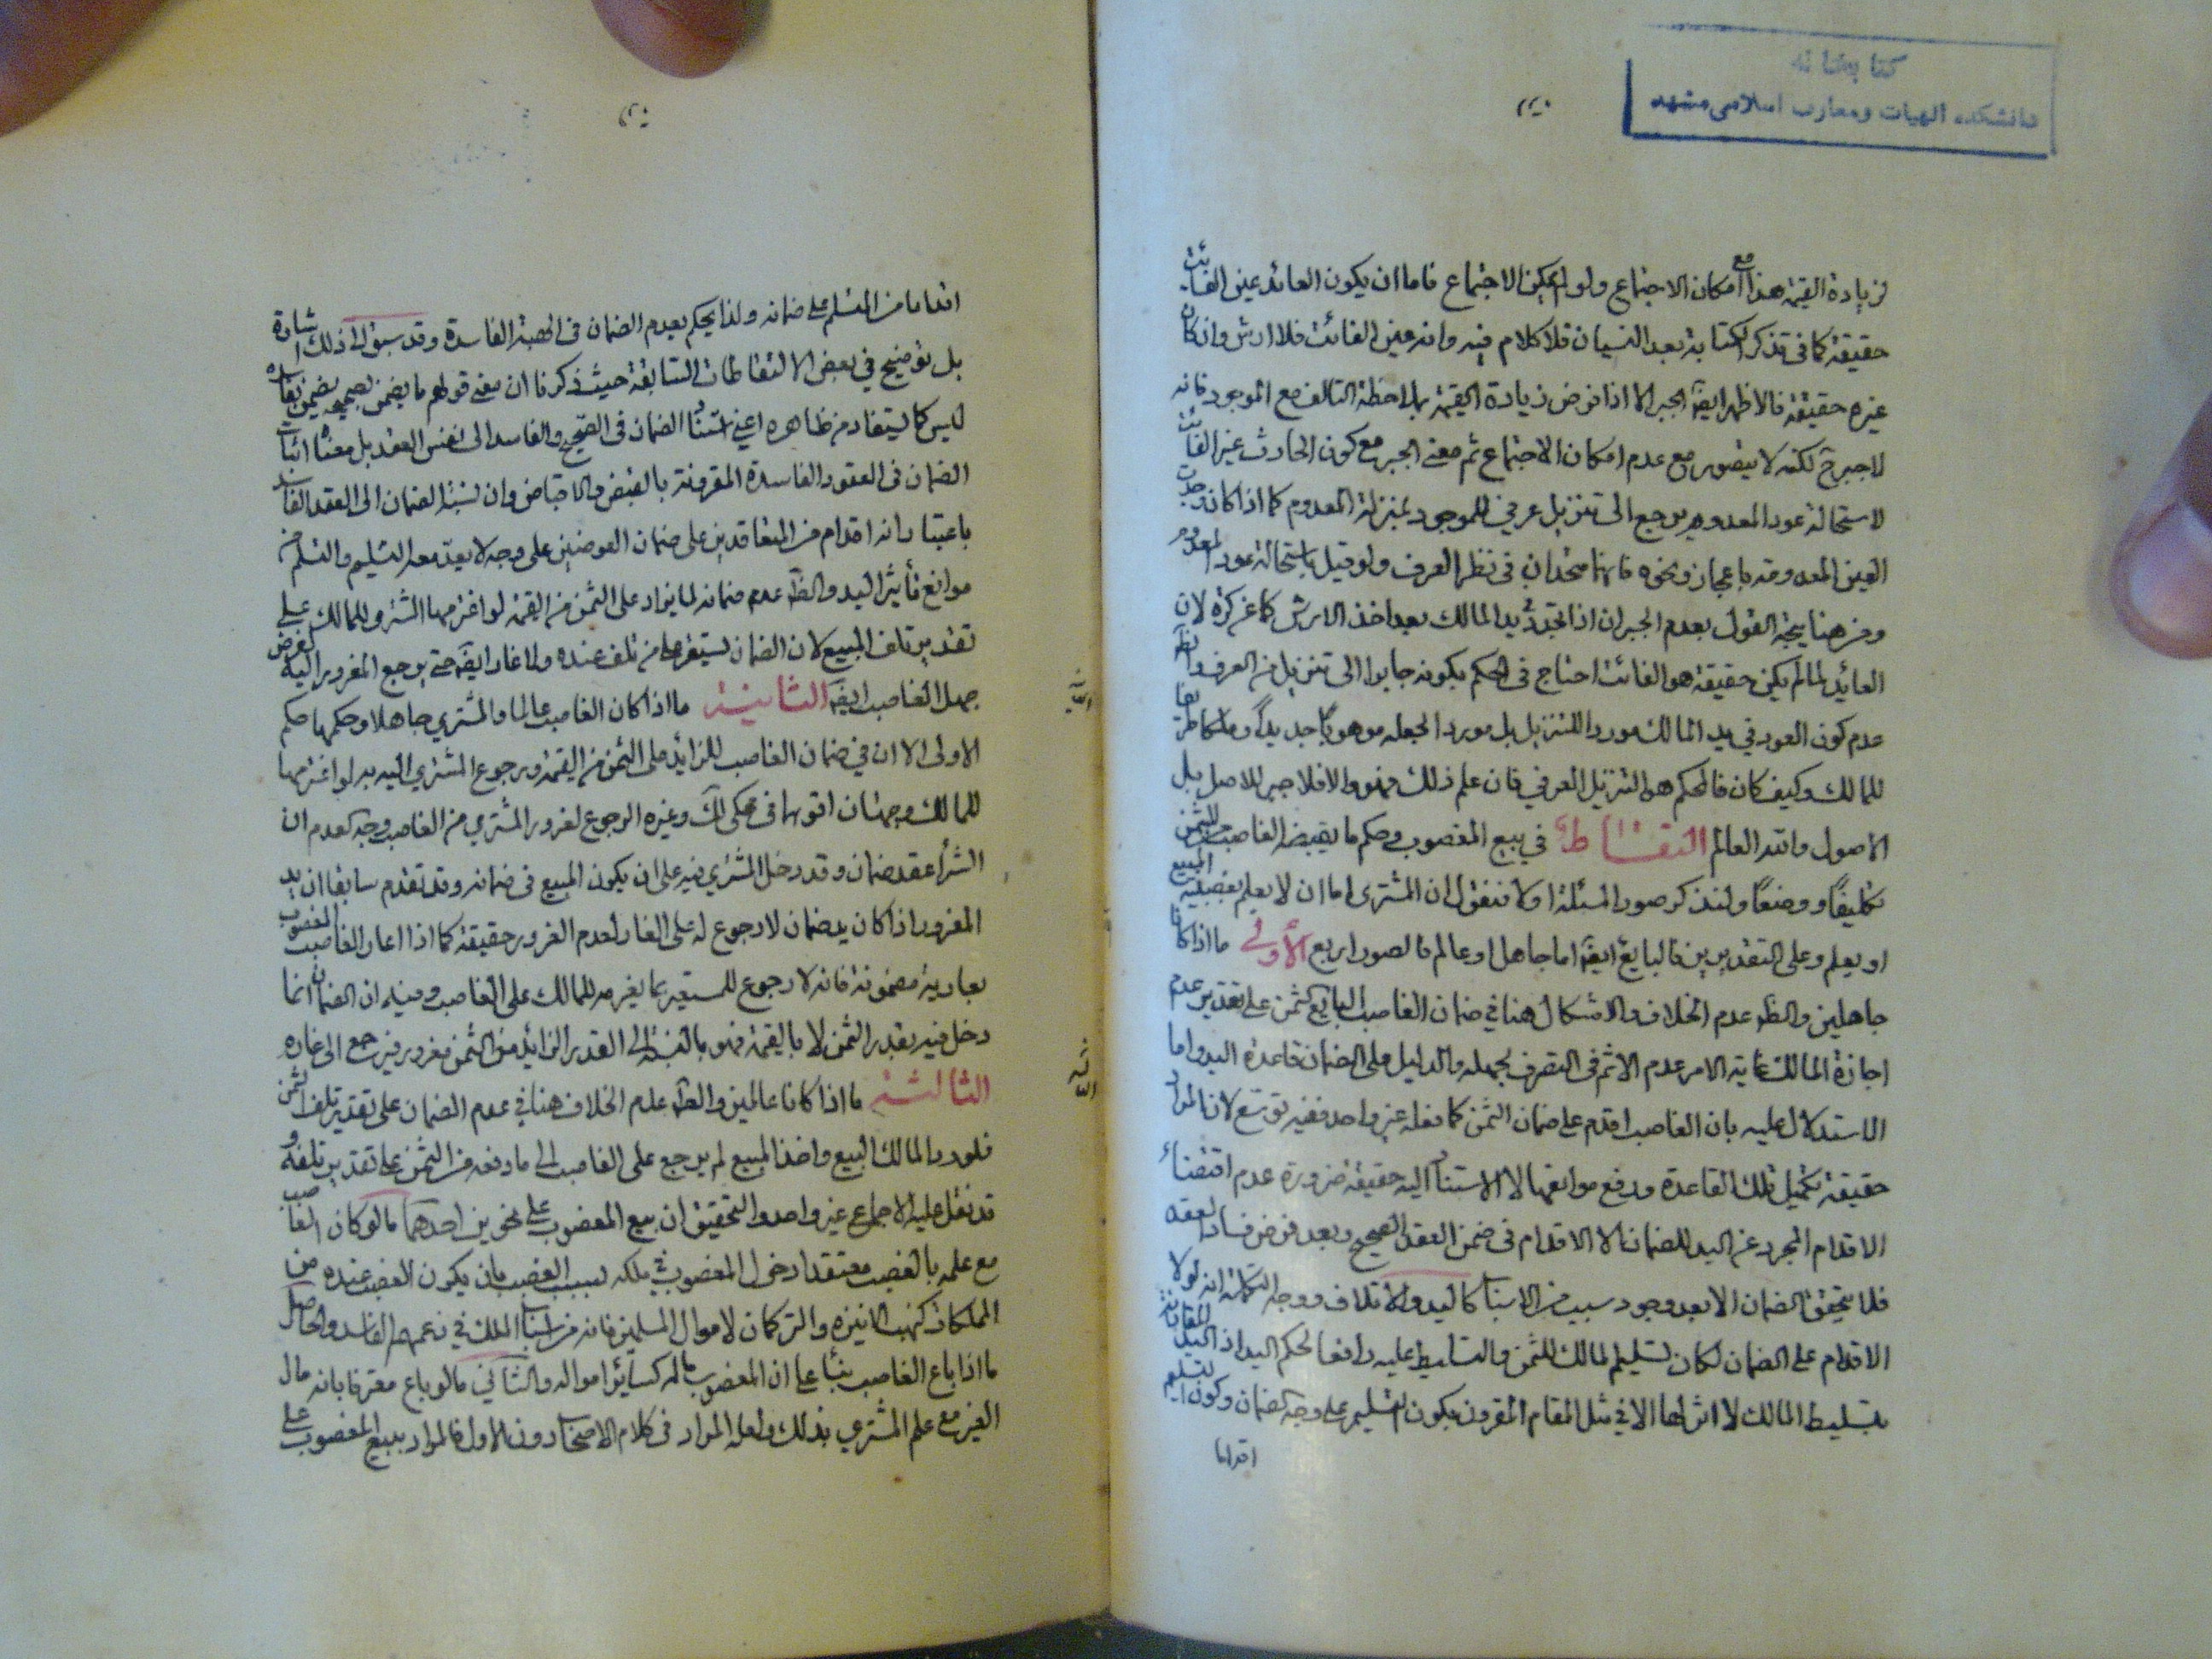 كتابخانه
دانشكده الهيات ومعارف اسلامى مشهد
لزيادة القيمة هذا مع امكان الاجتماع ولو لم يمكن الاجتماع فاما ان يكون العائد عين الفائت
حقيقة كما فى تذكر الكتابة بعد النسيان فلا كلام فيه وانه عين الفائت فلا ارش وان كان
غيره حقيقة فالاظهر ايضا الجبر الا اذا فرض زيادة القيمة بملاحظة التالف مع الموجود فانه
لا جبر ح لكنه لا يتصور مع عدم امكان الاجتماع ثم معنى الجبر مع كون الحادث غير الفائت
لاستحالة عود المعدوم يرجع الى تنزيل عرفي للموجود بمنزلة المعدوم كما اذا كان وجدت
العين المعدومة باعجاز ونحوه فانهما متحدان فى نظر العرف ولو قيل باستحالة عود المعدوم
ومن هنا يتجه القول بعدم الجبران اذا تجدد في يد المالك بعد اخذ الارش كما عن كره لان
العائد لما لم يكن حقيقة هو الفائت احتاج فى الحكم بكونه جابرا الى تنزيل من العرف والظ
عدم كون العود في يد المالك موردا للتنزيل بل مورد الجعله موهوبا جديدا وملكا طريا
للمالك وكيف كان فالحكم هو التنزيل العرفي فان علم ذلك فهو والا فلا جبر للاصل بل
الاصول والله العالم التقاط في بيع المغصوب وحكم ما يقبضه الغاصب من الثمن
تكليفا ووضعا ولنذكر صور المسئلة اولا فنقول ان المشترى اما ان لا يعلم بغصبية المبيع
او يعلم وعلى التقديرين فالبايع ايضا اما جاهل او عالم فالصور اربع الأولى ما اذا كانا
جاهلين والظ عدم الخلاف والاشكال هنا في ضمان الغاصب البايع للثمن على تقدير عدم
اجازة المالك غاية الامر عدم الاثم فى التصرف لجهله والدليل على الضمان قاعدة اليد واما
الاستدلال عليه بان الغاصب اقدم على ضمان الثمن كما فعله غير واحد ففيه توسع لان المراد
حقيقة تكميل تلك القاعدة ودفع موانعها لا الاستناد اليه حقيقة ضرورة عدم اقتضاء
الاقدام المجرد عن اليد للضمان الا الاقدام فى ضمن العقد الصحيح وبعد فرض فساد العقد
فلا يتحقق الضمان الا بعد وجود سبب من الاسباب كاليد والاتلاف ووجه التكملة انه لولا
الاقدام على الضمان لكان تسليم المالك للثمن والتسليط عليه رافعا لحكم اليد اذ اليد المقارنة
بتسليط المالك لا اثر لها الا في مثل المقام المقرون بكون التسليم على وجه الضمان وكون التسليم
اقداما
اقداما من المتسلم على ضمانه ولذا يحكم بعدم الضمان فى الهبة الفاسدة وقد سبق الى ذلك اشارة
بل توضيح في بعض الالتقاطات السابقة حيث ذكرنا ان معنى قولهم ما يضمن بصحيحه يضمن بفاسده
ليس كما يستفاد من ظاهره اعني استناد الضمان فى الصحيح والفاسد الى نفس العقد بل معناه اثبات
الضمان فى العقود الفاسدة المقرونة بالقبض والاقباض وان نسبة الضمان الى العقد الفاسد
باعتبار انه اقدام من المتعاقدين على ضمان العوضين على وجه لا يعد معه التسليم والتسلم من
موانع تأثير اليد والظ عدم ضمانه لما يزاد على الثمن من القيمة لو اغترمها المشترى للمالك على
تقدير تلف المبيع لان الضمان يستقر على من تلف عنده ولا غار ايضا حتى يرجع المغرور اليه لفرض
جهل الغاصب ايضا الثانية ما اذا كان الغاصب عالما والمشتري جاهلا وحكمها حكم
الاولى الا ان في ضمان الغاصب للزائد على الثمن من القيمة ورجوع المشتري اليه به لو اغترمها
للمالك وجهان اقويهما فى محكى لك وغيره الرجوع لغرور المشترى من الغاصب وجه العدم ان
الشراء عقد ضمان وقد دخل المشترى فيه على ان يكون المبيع فى ضمانه وقد تقدم سابقا ان يد
المغرور اذا كان يد ضمان لا رجوع له على الغار لعدم الغرور حقيقة كما اذا اعار الغاصب المغصوب
بعارية مضمونة فانه لا رجوع للمستعير بما يغرمه للمالك على الغاصب وفيه ان الضمان انما
دخل فيه بقدر الثمن لا بالقيمة فهو بالنسبة الى القدر الزائد من الثمن مغرور فيرجع الى غاره
الثالثة ما اذا كانا عالمين والظ عدم الخلاف هنا في عدم الضمان على تقدير تلف الثمن
فلو رد المالك البيع واخذ المبيع لم يرجع على الغاصب الى ما دفعه من الثمن على تقدير تلفه و
قد نقل عليه الاجماع غير واحد والتحقيق ان بيع المغصوب على نحوين احدهما ما لو كان الغاصب
مع علمه بالغصب معتقدا دخول المغصوب في ملكه بسبب الغصب بان يكون الغصب عنده من
المملكات كنهب والتركمان لاموال المسلمين فانه من اسباب الملك في زعمهم الفاسد والحاصل
ما اذا باع الغاصب بناء على ان المغصوب ماله كسائر امواله والثاني ما لو باع معترفا بانه مال
الغير مع علم المشتري بذلك ولعله المراد فى كلام الاصحاب دون الاول فالمراد ببيع المغصوب على